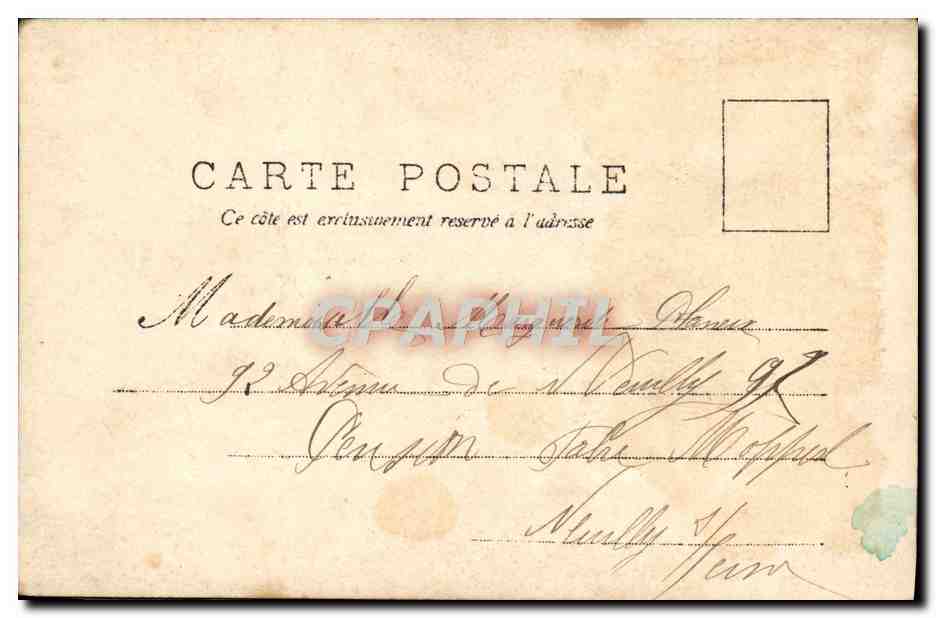 CARTE POSTALE
Ce côté est exclusivement reservé à l'adresse
CPAPHIL
Mademoiselle Marguerite
92 Avenue de Neuilly 92
Pension
Neuilly s/Seine